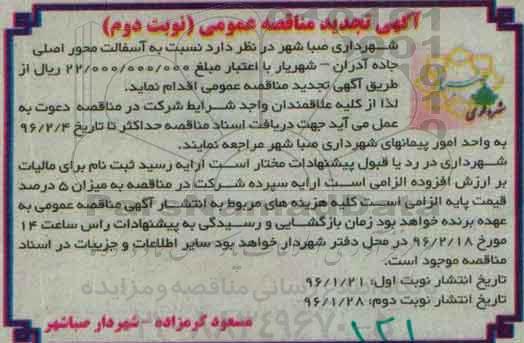 آگهی تجدید مناقصه عمومی (نوبت دوم)
شهرداری صبا شهر در نظر دارد نسبت به آسفالت محور اصلی
جاده آدران – شهریار با اعتبار مبلغ ۲۲/۰۰۰/۰۰۰/۰۰۰ ریال از
طریق آگهی تجدید مناقصه عمومی اقدام نماید.
لذا از کلیه علاقمندان واجد شرایط شرکت در مناقصه دعوت به
عمل می آید جهت دریافت اسناد مناقصه حداکثر تا تاریخ ۹۶/۲/۴
به واحد امور پیمانهای شهرداری صبا شهر مراجعه نمایند.
شهرداری در رد یا قبول پیشنهادات مختار است ارایه رسید ثبت نام برای مالیات
بر ارزش افزوده الزامی است ارایه سپرده شرکت در مناقصه به میزان ۵ درصد
قیمت پایه الزامی است کلیه هزینه های مربوط به انتشار آگهی مناقصه عمومی به
عهده برنده خواهد بود زمان بازگشایی و رسیدگی به پیشنهادات راس ساعت ۱۴
مورخ ۹۶/۲/۱۸ در محل دفتر شهردار خواهد بود سایر اطلاعات و جزییات در اسناد
مناقصه موجود است.
تاریخ انتشار نوبت اول: ۹۶/۱/۲۱
تاریخ انتشار نوبت دوم: ۹۶/۱/۲۸
مسعود کرمزاده – شهردار صباشهر
۱۲۱